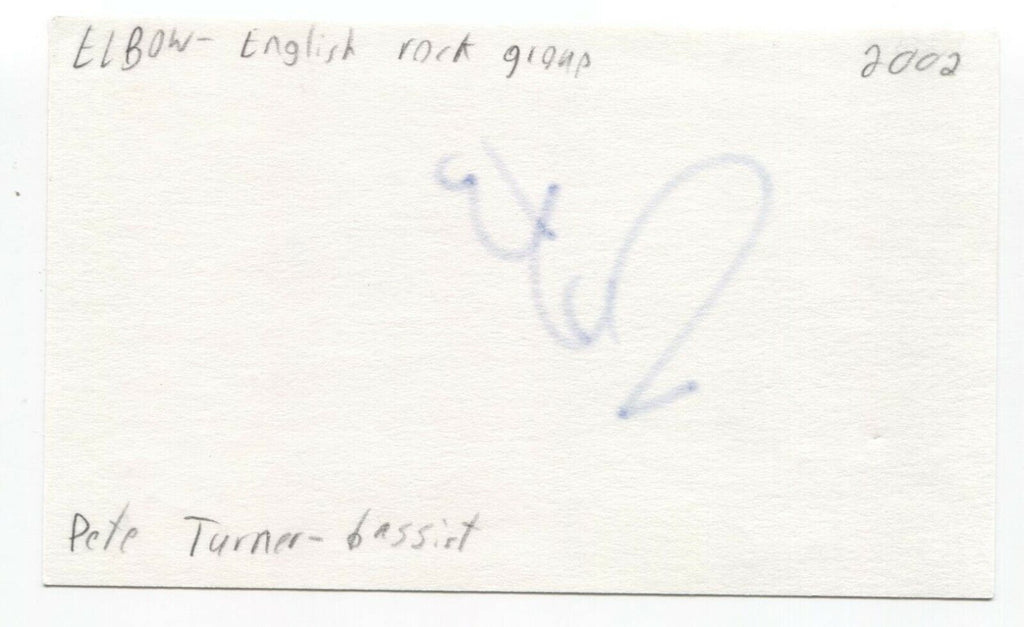 ELBOW- English rock group 2002
Pete Turner- bassist